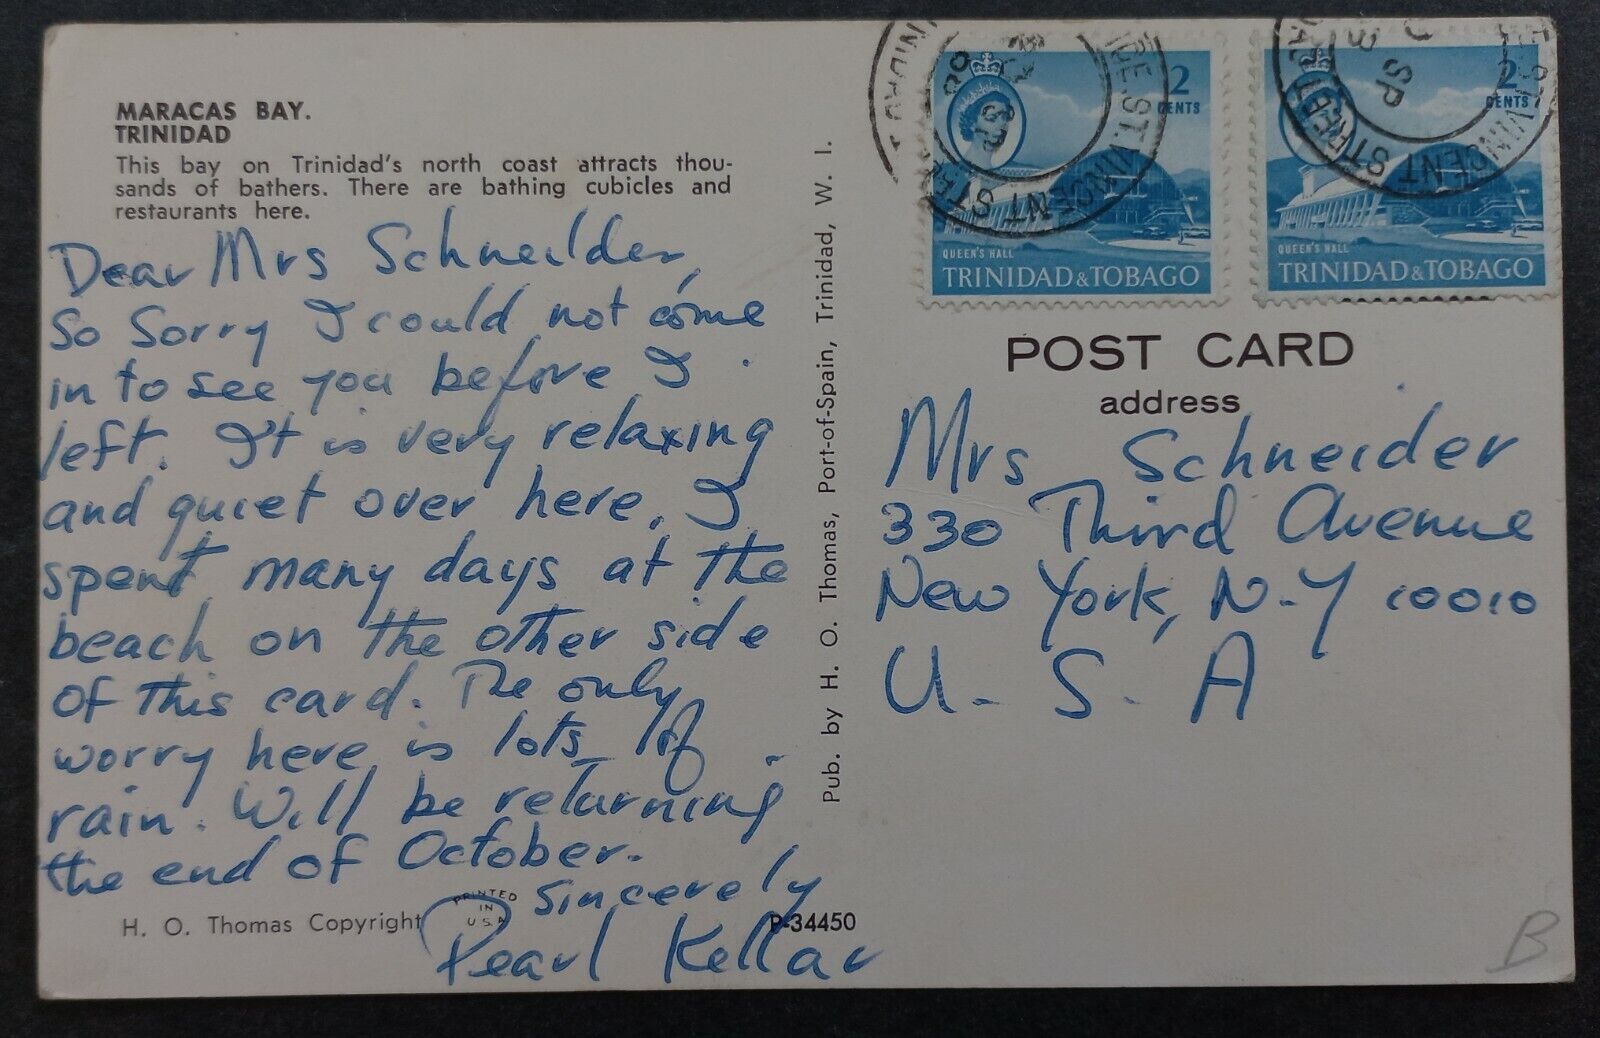 MARACAS BAY.
TRINIDAD
This bay on Trinidad's north coast attracts thou-
sands of bathers. There are bathing cubicles and
restaurants here.
Dear Mrs Schneilder,
So Sorry I could not come
in to see you before I
left. It is very relaxing
and quiet over here. I
spent many days at the
beach on the other side
of this card. The only
worry here is lots of
rain. Will be returning
the end of October.
Sincerely
Pearl Kellar
PRINTED
IN
U S A
H. O. Thomas Copyright
P-34450
Pub. by H. O. Thomas, Port-of-Spain, Trinidad, W. I.
2
CENTS
QUEEN'S HALL
TRINIDAD & TOBAGO
2
CENTS
QUEEN'S HALL
TRINIDAD & TOBAGO
ST. VINCENT STREET
SP
ST. VINCENT STREET
3 SP
POST CARD
address
Mrs Schneider
330 Third Avenue
New York, N-Y 10010
U. S. A
B